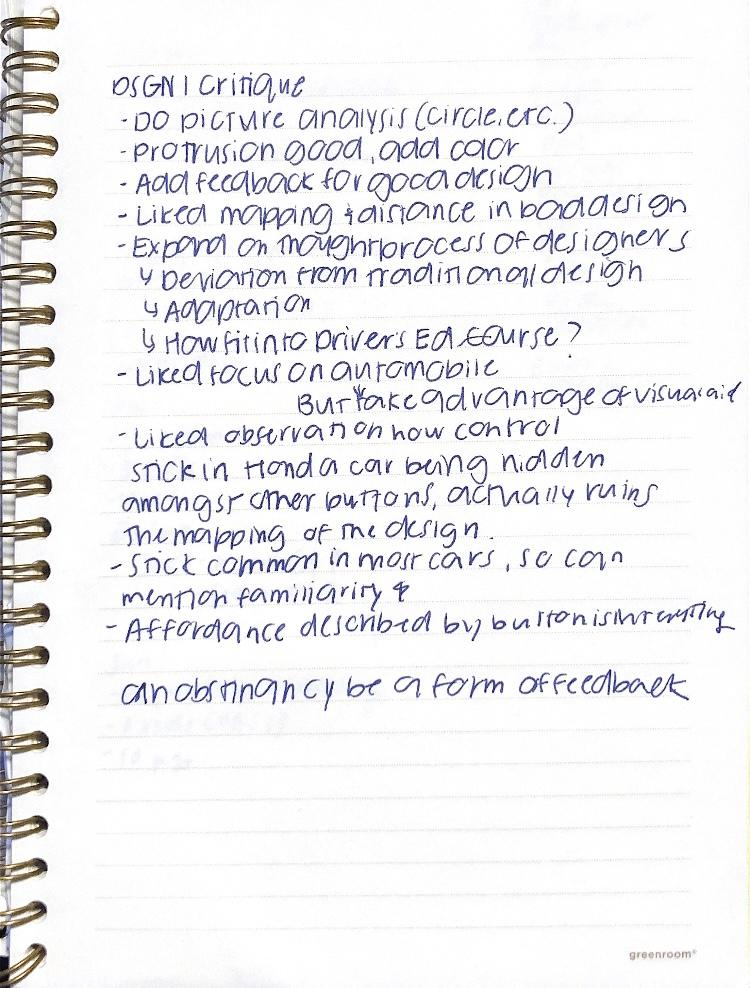 DSGN 1 Critique
- Do picture analysis (circle, etc.)
- Protrusion good, add color
- Add feedback for good design
- Liked mapping & distance in bad design
- Expand on thought process of designers
↳ Deviation from traditional design
↳ Adaptation
↳ How fit into Driver's Ed course?
- Liked focus on automobile
But take advantage of visual aid
- Liked observation how control
stick in Honda car being hidden
amongst other buttons, actually ruins
the mapping of the design.
- Stick common in most cars, so can
mention familiarity &
- Affordance described by button is interesting
can abstinancy be a form of feedback
greenroom®